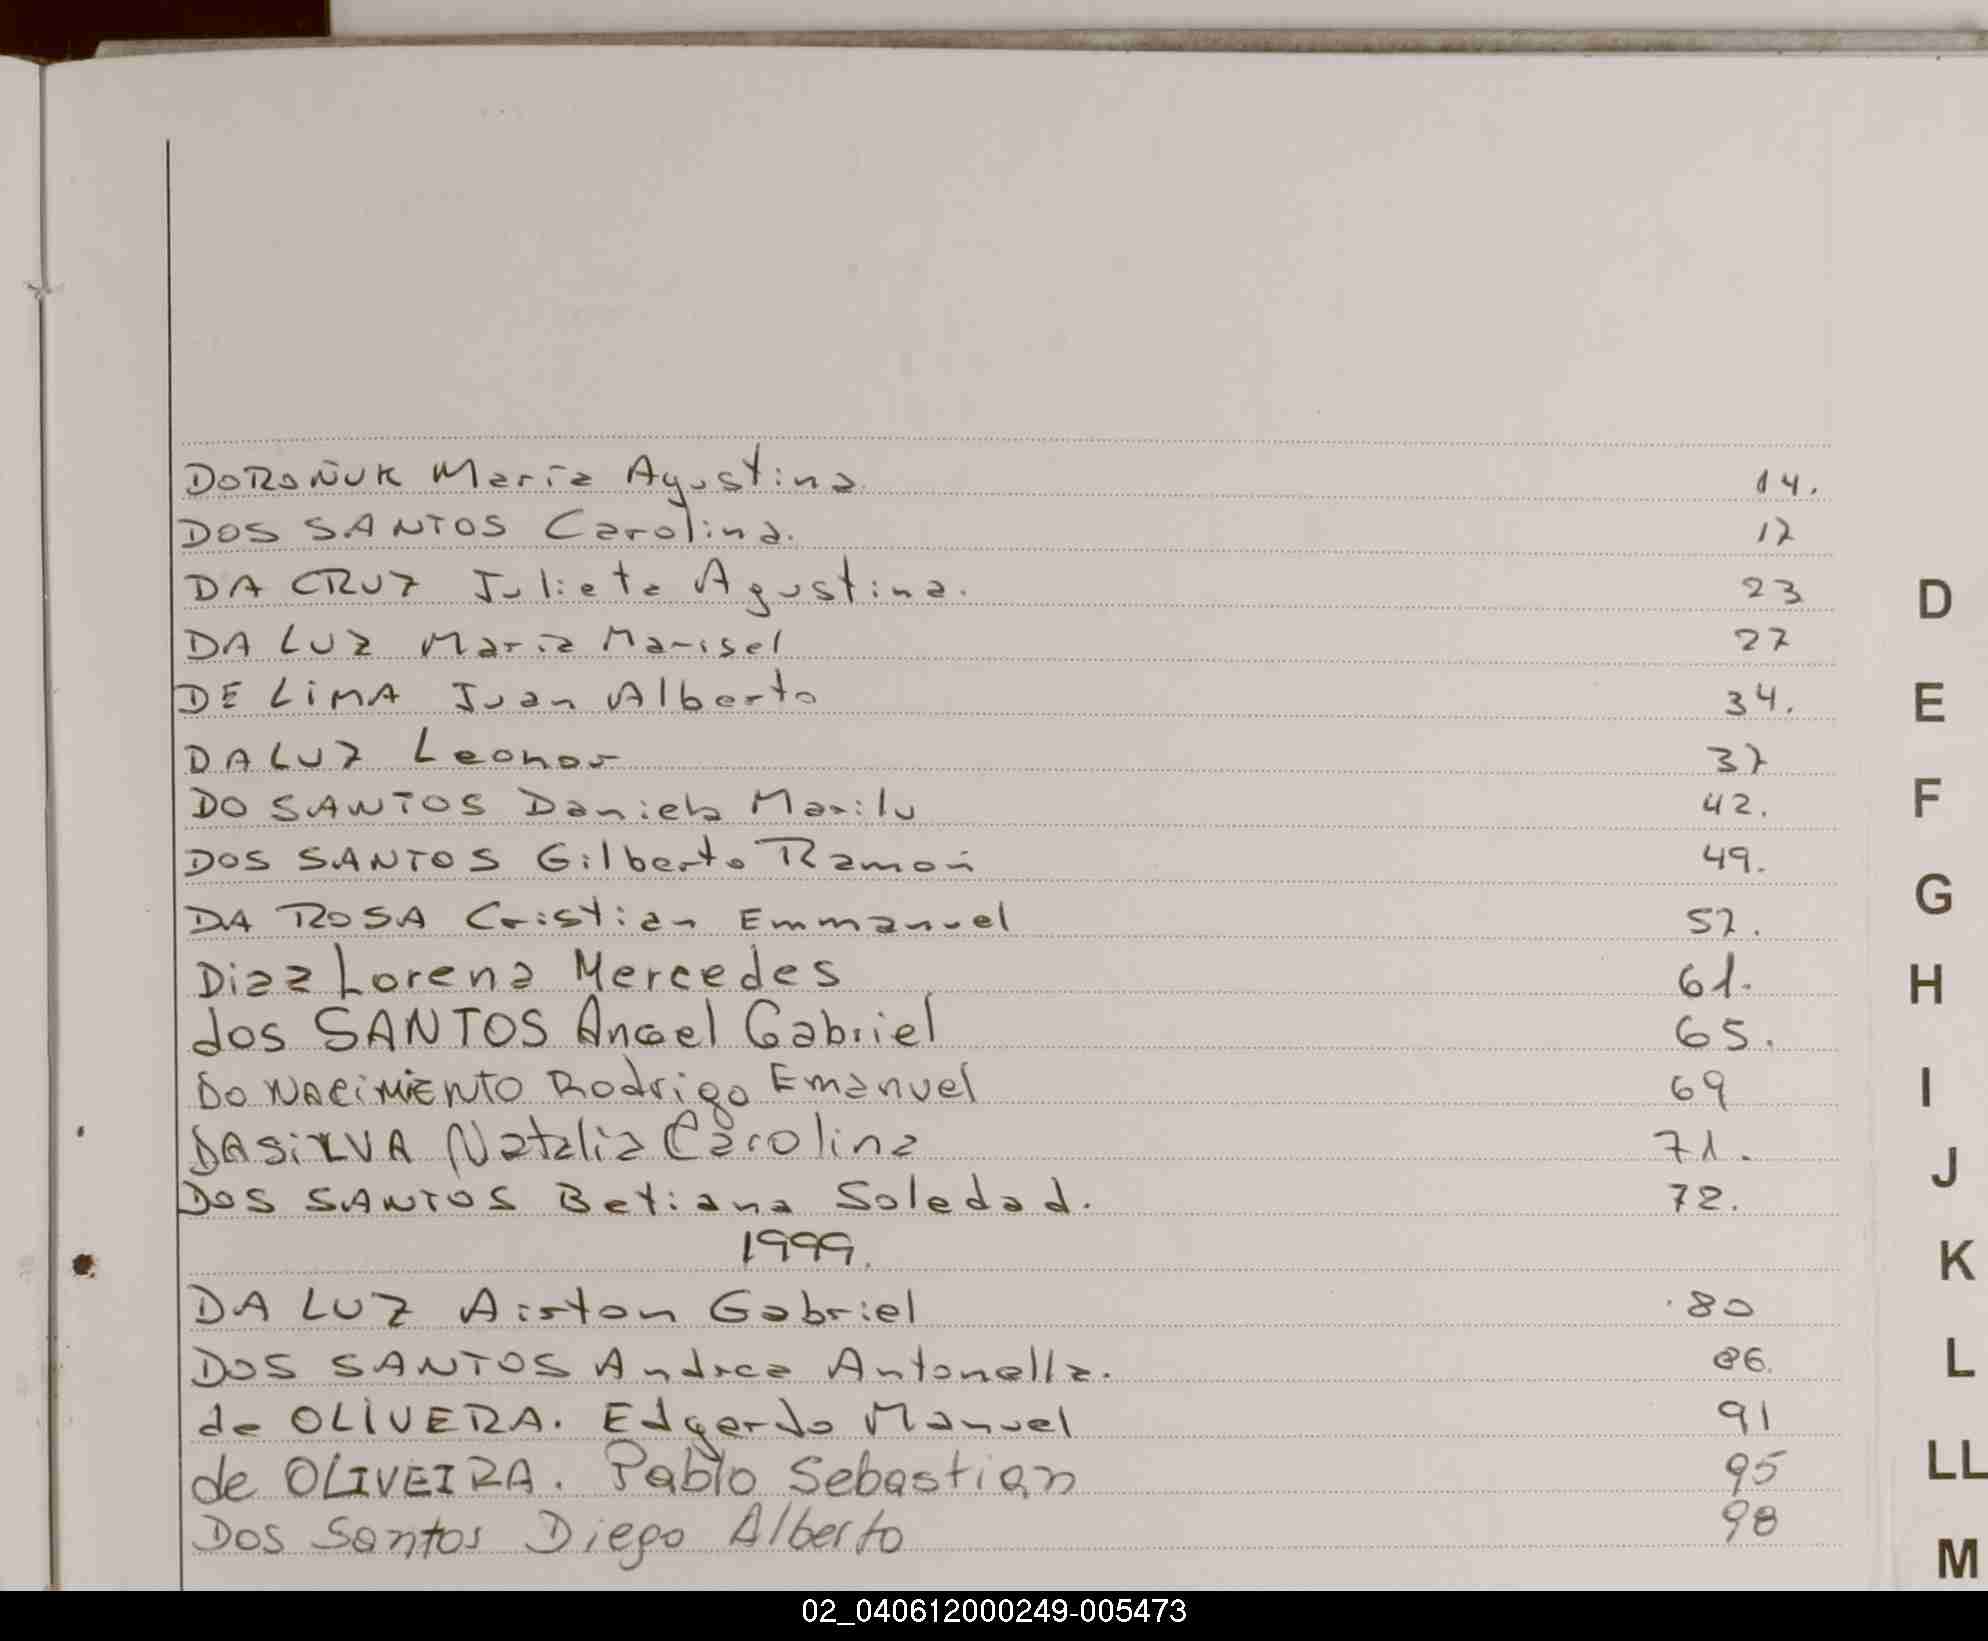 DOROÑUK María Agustina. 14.
DOS SANTOS Carolina. 17
DA CRUZ Julieta Agustina. 23
DA LUZ María Marisel 27
DE LiMA Juan Alberto 34.
DA LUZ Leonor 37
DO SANTOS Daniela Marilu 42.
DOS SANTOS Gilberto Ramón 49.
DA ROSA Cristian Emmanuel 57.
Diaz Lorena Mercedes 61.
dos SANTOS Angel Gabriel 65.
DO NACiMiENTO Rodrigo Emanuel 69
DASiLVA Natalia Carolina 71.
DOS SANTOS Betiana Soledad. 72.
1999.
DA LUZ Airton Gabriel 80
DOS SANTOS Andrea Antonella. 86.
de OLIVERA. Edgardo Manuel 91
de OLIVEIRA. Pablo Sebastian 95
Dos Santos Diego Alberto 98
D
E
F
G
H
I
J
K
L
LL
M
02_040612000249-005473